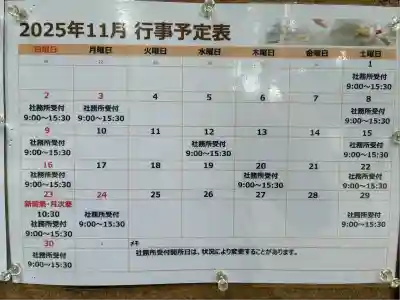 2025年11月 行事予定表
日曜日 月曜日 火曜日 水曜日 木曜日 金曜日 土曜日
1
社務所受付
9:00～15:30
2 3 4 5 6 7 8
社務所受付 社務所受付 社務所受付
9:00～15:30 9:00～15:30 9:00～15:30
9 10 11 12 13 14 15
社務所受付 社務所受付 社務所受付
9:00～15:30 9:00～15:30 9:00～15:30
16 17 18 19 20 21 22
社務所受付 社務所受付 社務所受付
9:00～15:30 9:00～15:30 9:00～15:30
23 24 25 26 27 28 29
新嘗祭・月次祭
10:30 社務所受付 社務所受付
社務所受付 9:00～15:30 9:00～15:30
9:00～15:30
30 メモ
社務所受付 社務所受付開所日は、状況により変更することがあります。
9:00～15:30